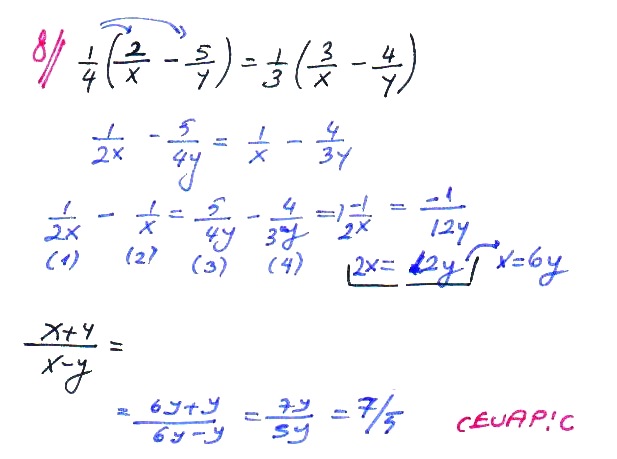 8// 1/4 (2/x - 5/y) = 1/3 (3/x - 4/y)
1/2x - 5/4y = 1/x - 4/3y
1/2x - 1/x = 5/4y - 4/3y => -1/2x = -1/12y
(1) (2) (3) (4) 2x = 12y x=6y
x+y/x-y =
= 6y+y/6y-y = 7y/5y = 7/5 CEVAP!C